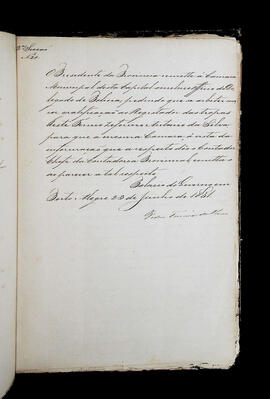 2ª Secção
O Presidente da Provincia remette á Camara
Municipal desta Capital o incluso officio do De
legado de Policia, pedindo que
a qualificação de Regulador das tropas
deste Termo Zeferino Antonio da Silva
para que a mesma Camara, á vista da
informação que a respeito dêo o Contador
Chefe da Contadoria Provincial emitta o
seo parecer a tal respeito.
Palacio do Governo em
Porto Alegre 23 de Junho de 1851